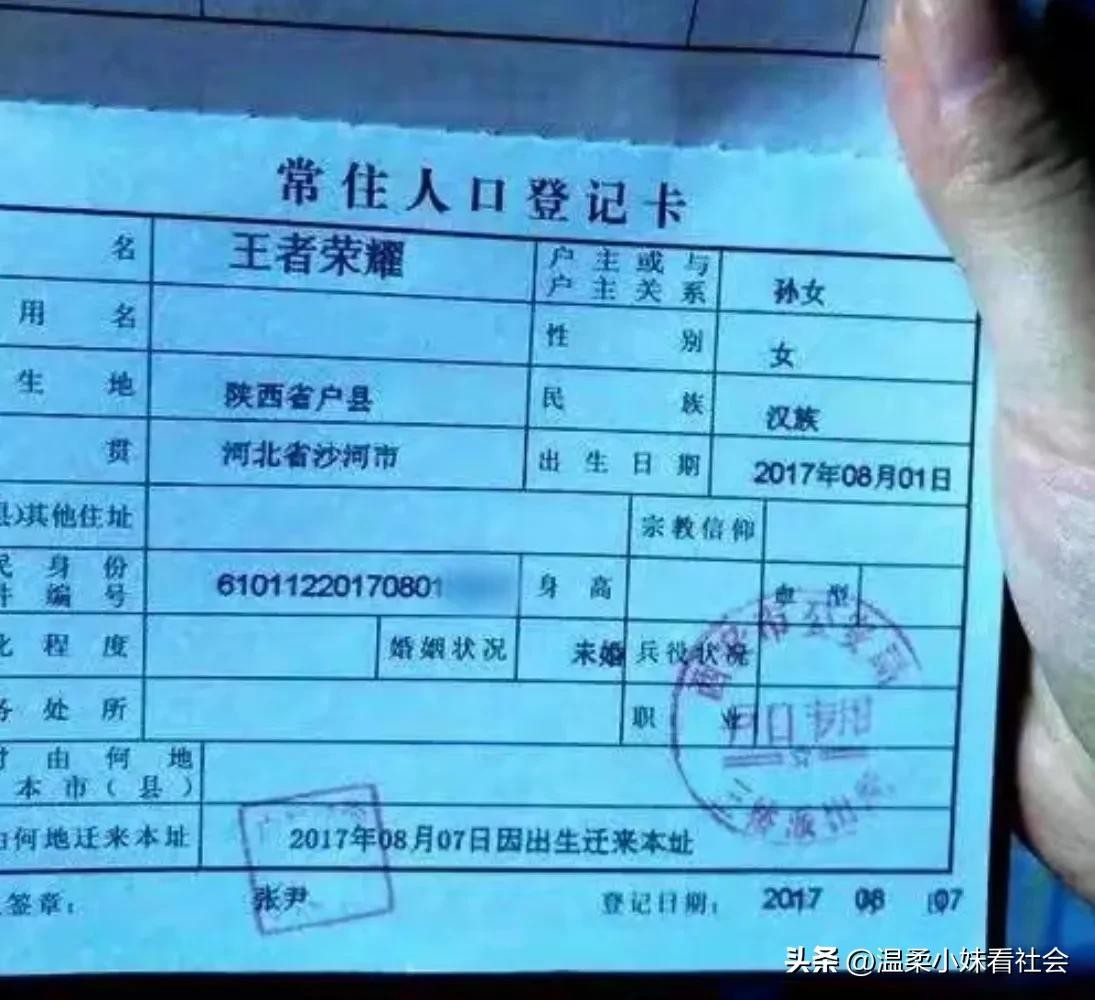 常住人口登记卡
名 王者荣耀 户主或与户主关系 孙女
用名 性别 女
生地 陕西省户县 民族 汉族
贯 河北省沙河市 出生日期 2017年08月01日
县)其他住址 宗教信仰
民身份件编号 61011220170801 身高 血型
化程度 婚姻状况 未婚 兵役状况
务处所 职业
时由何地本市(县)
由何地迁来本址 2017年08月07日因出生迁来本址
签章: 张尹 登记日期: 2017 08 07
市公安局
户口专用
派出所
头条 @温柔小妹看社会